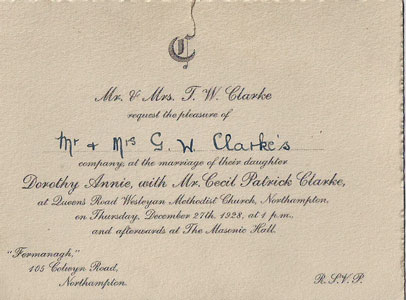 C
Mr. & Mrs. T. W. Clarke
request the pleasure of
Mr & Mrs G. W. Clarke's
company, at the marriage of their daughter
Dorothy Annie, with Mr. Cecil Patrick Clarke,
at Queens Road Wesleyan Methodist Church, Northampton,
on Thursday, December 27th, 1928, at 1 p.m.,
and afterwards at The Masonic Hall.
"Fermanagh,"
105 Colwyn Road,
Northampton.
R.S.V.P.